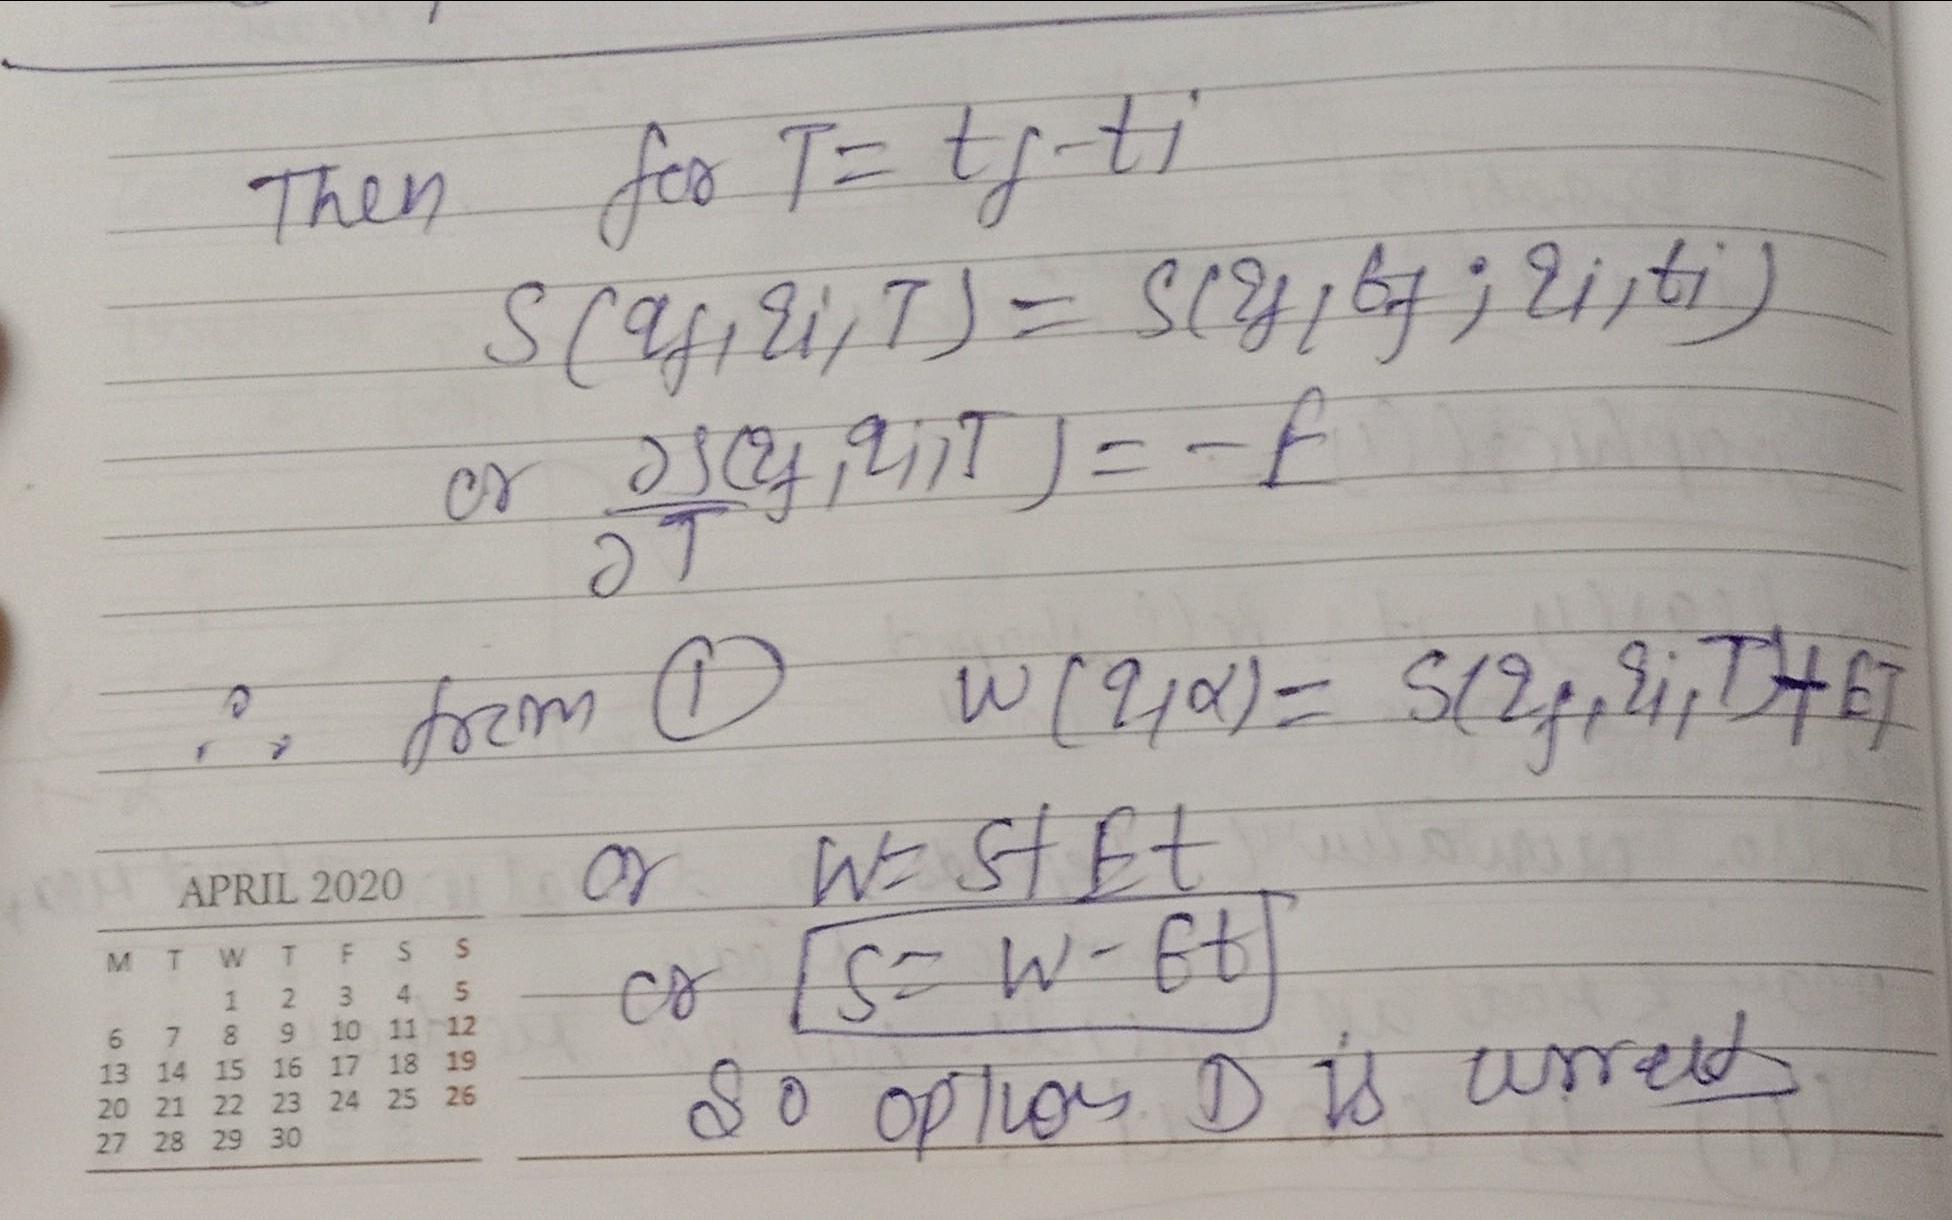 Then for T = tf - ti
S(qf, qi, T) = S(qf, tf ; qi, ti)
or ∂S(qf, qi, T) / ∂T = - E
∴ from ① W(q, α) = S(qf, qi, T) + ET
or W = S + Et
or S = W - Et
So option D is correct
APRIL 2020
M T W T F S S
1 2 3 4 5
6 7 8 9 10 11 12
13 14 15 16 17 18 19
20 21 22 23 24 25 26
27 28 29 30